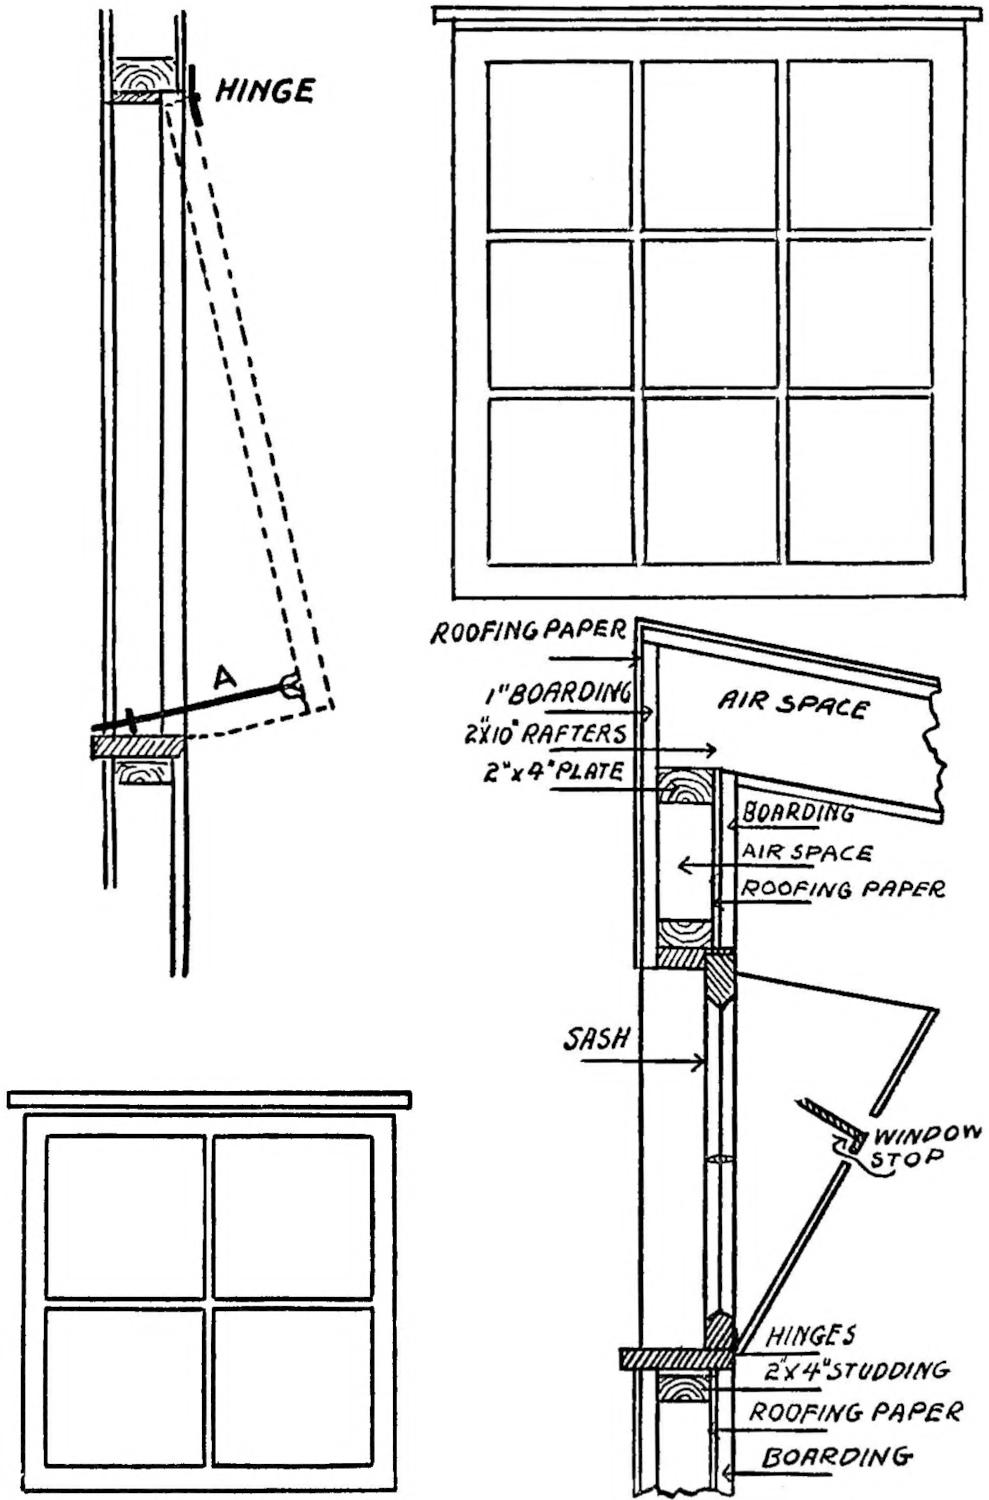 HINGE
A
ROOFING PAPER
1" BOARDING
2"X10" RAFTERS
2"x4" PLATE
AIR SPACE
BOARDING
AIR SPACE
ROOFING PAPER
SASH
WINDOW
STOP
HINGES
2"X4" STUDDING
ROOFING PAPER
BOARDING